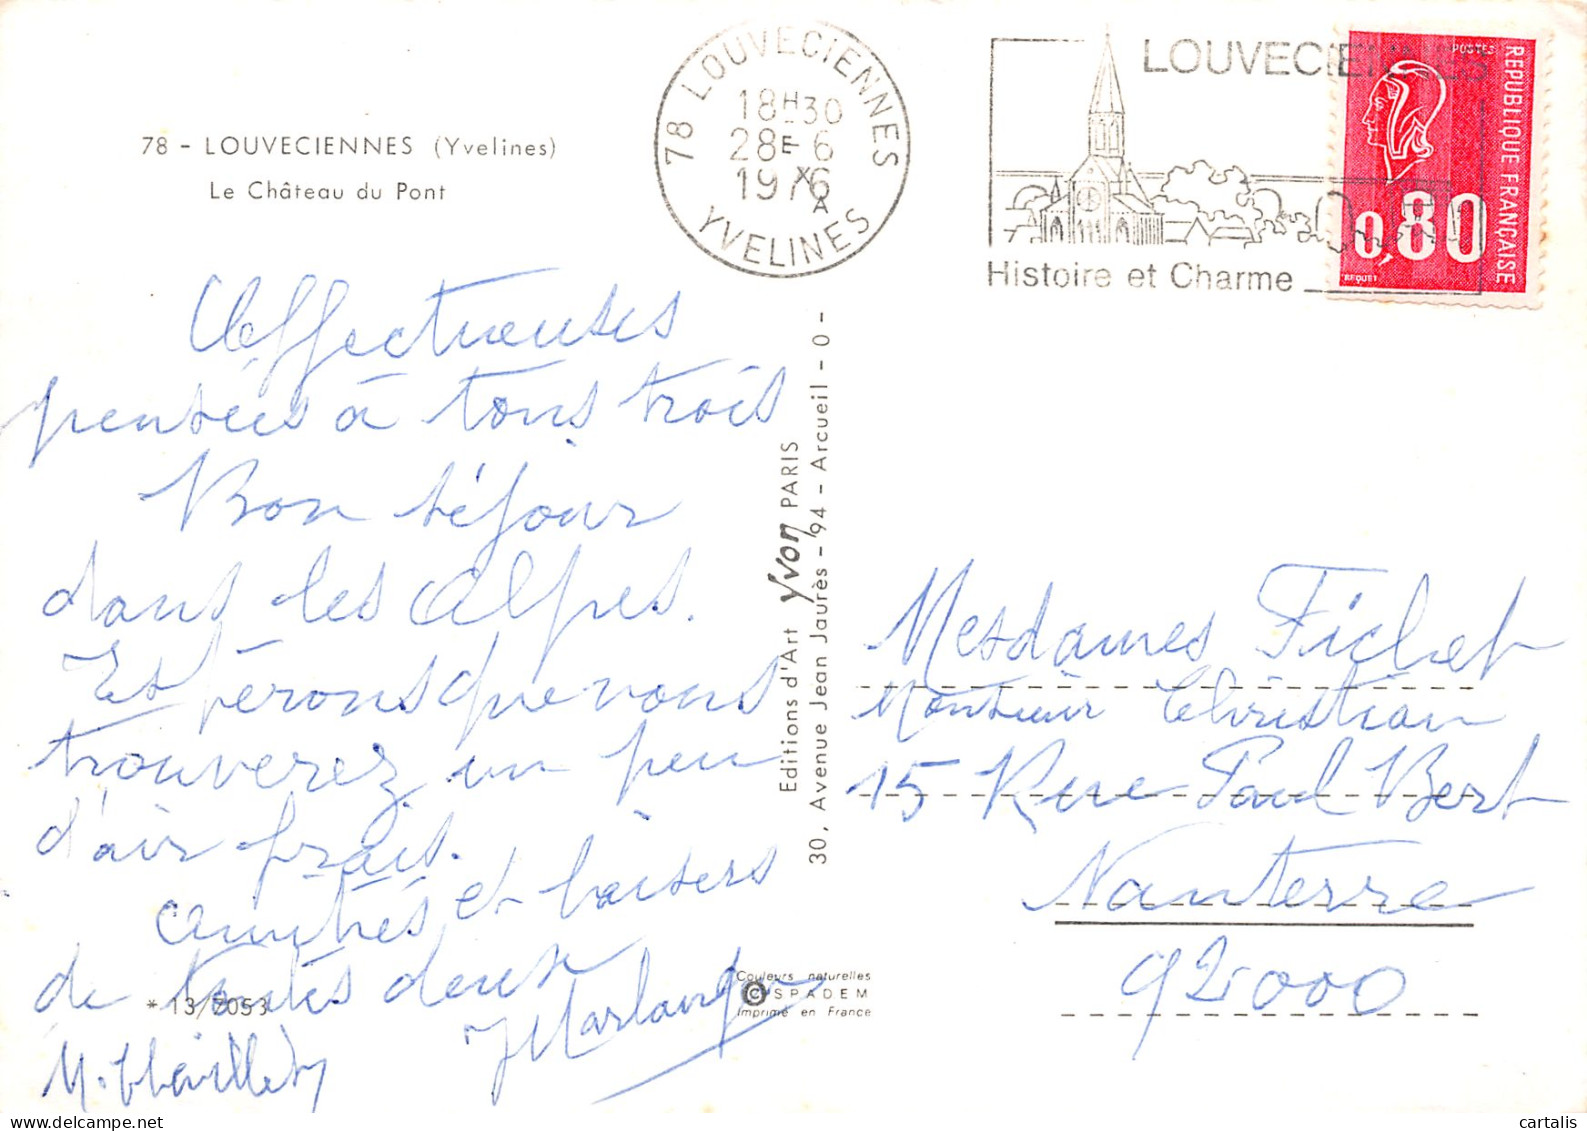 78 - LOUVECIENNES (Yvelines)
Le Château du Pont
78 LOUVECIENNES
18H30
28-6
1976
A
YVELINES
LOUVECIENNES
Histoire et Charme
POSTES
REPUBLIQUE FRANÇAISE
0,80
BEQUET
Affectueuses
pensées à tous trois
Bon séjour
dans les Alpes.
Espérons que vous
trouverez un peu
d'air frais.
Amitiés et baisers
de toutes deux
Editions d'Art Yvon PARIS
30, Avenue Jean Jaurès - 94 - Arcueil - O -
Mesdames Fichet
Monsieur Christian
15 Rue Paul Bert
Nanterre
92000
* 13/2053
Couleurs naturelles
© SPADEM
Imprimé en France
cartalis